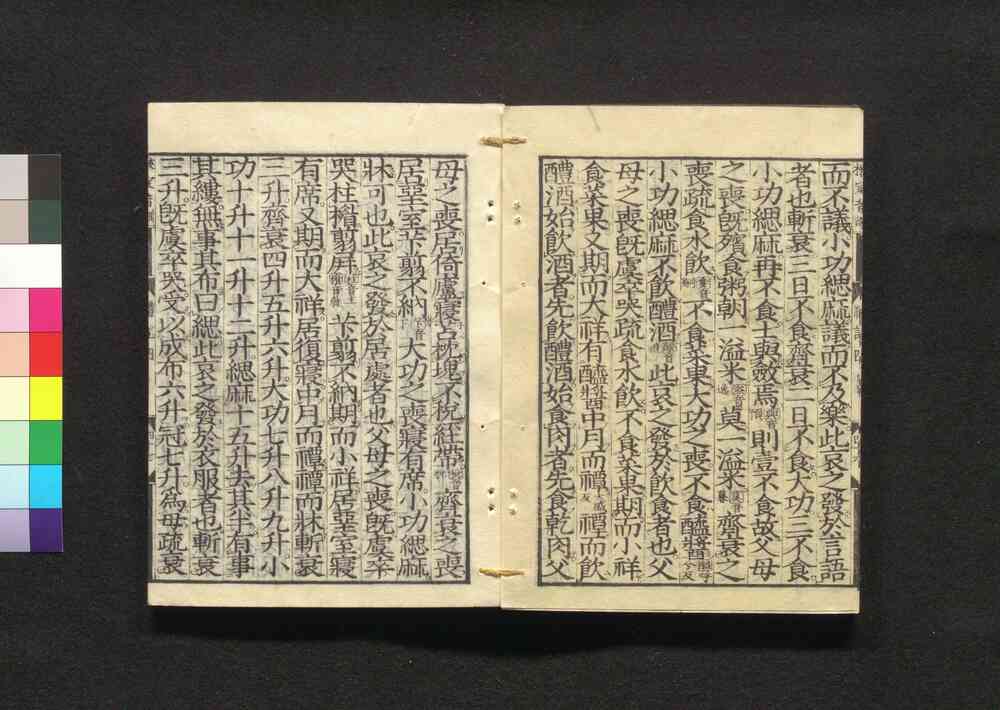 而不議小功緦麻議而不及樂此哀之發於言語
者也斬衰三日不食齊衰二日不食大功三不食
小功緦麻再不食士與斂焉則壹不食故父母
之喪旣殯食粥朝一溢米莫一溢米齊衰之
喪疏食水飮不食菜果大功之喪不食醯醬
小功緦麻不飮醴酒此哀之發於飮食者也父
母之喪旣虞卒哭疏食水飮不食菜果期而小祥
食菜果又期而大祥有醯醬中月而禫禫而飮
醴酒始飮酒者先飮醴酒始食肉者先食乾肉父
母之喪居倚廬寢苫枕塊不梲絰帶齊衰之喪
居堊室芐翦不納大功之喪寢有席小功緦麻
牀可也此哀之發於居處者也父母之喪旣虞卒
哭柱楣翦屛芐翦不納期而小祥居堊室寢
有席又期而大祥居復寢中月而禫禫而牀斬衰
三升齊衰四升五升六升大功七升八升九升小
功十升十一升十二升緦麻十五升去其半有事
其縷無事其布曰緦此哀之發於衣服者也斬衰
三升旣虞卒哭受以成布六升冠七升爲母疏衰